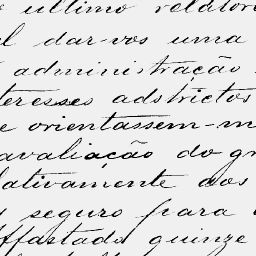 ultimo relator
dar-vos uma
administração
teresses adstrictos
e orientassem-m
avaliação do gr
lativamente aos
seguro para
Affastado quinze